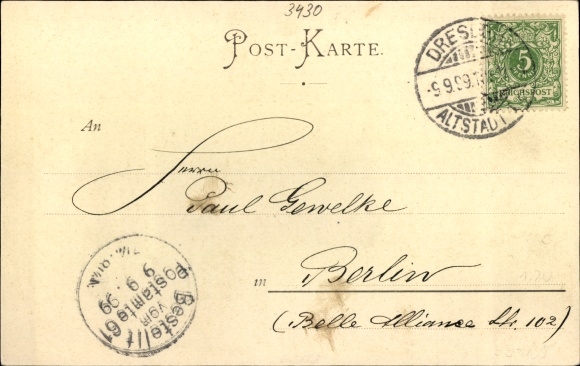 3430
POST-KARTE.
DRESDEN
-9.9.99.
ALTSTADT
5
REICHSPOST
An
Herrn
Paul Gewelke
in Berlin
(Belle Alliance Str. 102)
Bestellt
vom
Postamte 61
9 9 99